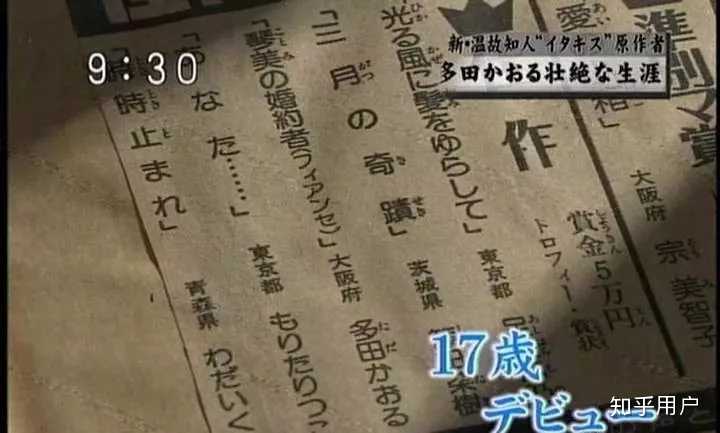 9:30
新・温故知人“イタキス”原作者
多田かおる壮絶な生涯
準別マ賞
大阪府 宗美智子
作
賞金5万円
トロフィー・賞状
光る風に髪をゆらして」
東京都
「三月の奇蹟」
茨城県
「琴美の婚約者(フィアンセ)」
大阪府 多田かおる
「あなた……」
東京都 もりたりつ
時止まれ」
青森県 わだいく
17歳
デビュー
知乎用户